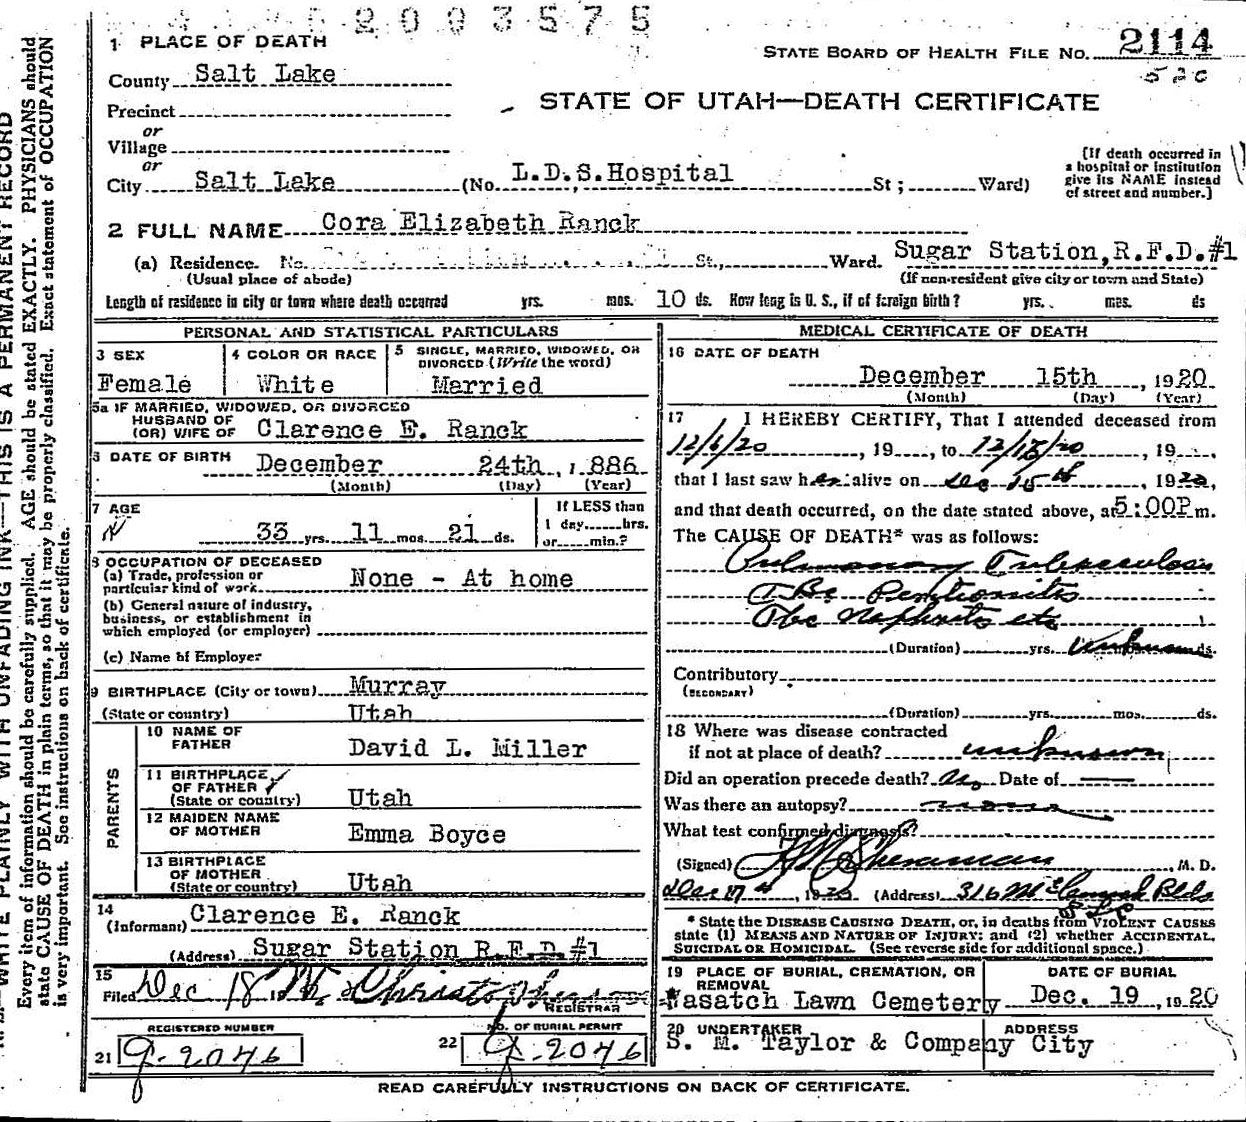 2003575
1 PLACE OF DEATH
STATE BOARD OF HEALTH FILE NO. 2114
520
County Salt Lake
STATE OF UTAH—DEATH CERTIFICATE
Precinct
or
Village
or
City Salt Lake (No. L.D.S.Hospital St; Ward)
[If death occurred in
a hospital or institution
give its NAME instead
of street and number.]
2 FULL NAME Cora Elizabeth Ranck
(a) Residence. No. St., Ward. Sugar Station,R.F.D.#1
(Usual place of abode) (If non-resident give city or town and State)
Length of residence in city or town where death occurred yrs. mos. 10 ds. How long is U. S., if of foreign birth? yrs. mos. ds
PERSONAL AND STATISTICAL PARTICULARS
3 SEX
Female
4 COLOR OR RACE
White
5 SINGLE, MARRIED, WIDOWED, OR
DIVORCED (Write the word)
Married
5a IF MARRIED, WIDOWED, OR DIVORCED
HUSBAND OF
(OR) WIFE OF Clarence E. Ranck
6 DATE OF BIRTH December 24th, 1886
(Month) (Day) (Year)
7 AGE
33 yrs. 11 mos. 21 ds.
If LESS than
1 day hrs.
or min.?
8 OCCUPATION OF DECEASED
(a) Trade, profession or
particular kind of work None - At home
(b) General nature of industry,
business, or establishment in
which employed (or employer)
(c) Name of Employer
9 BIRTHPLACE (City or town) Murray
(State or country) Utah
PARENTS
10 NAME OF
FATHER David L. Miller
11 BIRTHPLACE
OF FATHER
(State or country) Utah
12 MAIDEN NAME
OF MOTHER Emma Boyce
13 BIRTHPLACE
OF MOTHER
(State or country) Utah
14
(Informant) Clarence E. Ranck
(Address) Sugar Station R.F.D.#1
15
Filed Dec 18
REGISTRAR
REGISTERED NUMBER
21 J-2046
NO. OF BURIAL PERMIT
22 J-2046
MEDICAL CERTIFICATE OF DEATH
16 DATE OF DEATH
December 15th, 1920
(Month) (Day) (Year)
17 I HEREBY CERTIFY, That I attended deceased from
12/6/20, 19 , to 12/15/20, 19 ,
that I last saw her alive on Dec 15th, 1920,
and that death occurred, on the date stated above, at 5:00P m.
The CAUSE OF DEATH* was as follows:
Pulmonary Tuberculosis
TBc Peritonitis
Tbc Nephritis etc
(Duration) yrs. unknown ds.
Contributory
(SECONDARY)
(Duration) yrs. mos. ds.
18 Where was disease contracted
if not at place of death? unknown
Did an operation precede death? No Date of
Was there an autopsy? none
What test confirmed diagnosis?
(Signed) Sherman, M. D.
Dec 17th, 1920 (Address) 316
* State the DISEASE CAUSING DEATH, or, in deaths from VIOLENT CAUSES
state (1) MEANS AND NATURE OF INJURY; and (2) whether ACCIDENTAL,
SUICIDAL OR HOMICIDAL. (See reverse side for additional space.)
19 PLACE OF BURIAL, CREMATION, OR
REMOVAL
Wasatch Lawn Cemetery
DATE OF BURIAL
Dec. 19, 1920
20 UNDERTAKER
S. M. Taylor & Company
ADDRESS
City
READ CAREFULLY INSTRUCTIONS ON BACK OF CERTIFICATE.
WRITE PLAINLY WITH UNFADING INK—THIS IS A PERMANENT RECORD
Every item of information should be carefully supplied. AGE should be stated EXACTLY. PHYSICIANS should
state CAUSE OF DEATH in plain terms, so that it may be properly classified. Exact statement of OCCUPATION
is very important. See instructions on back of certificate.